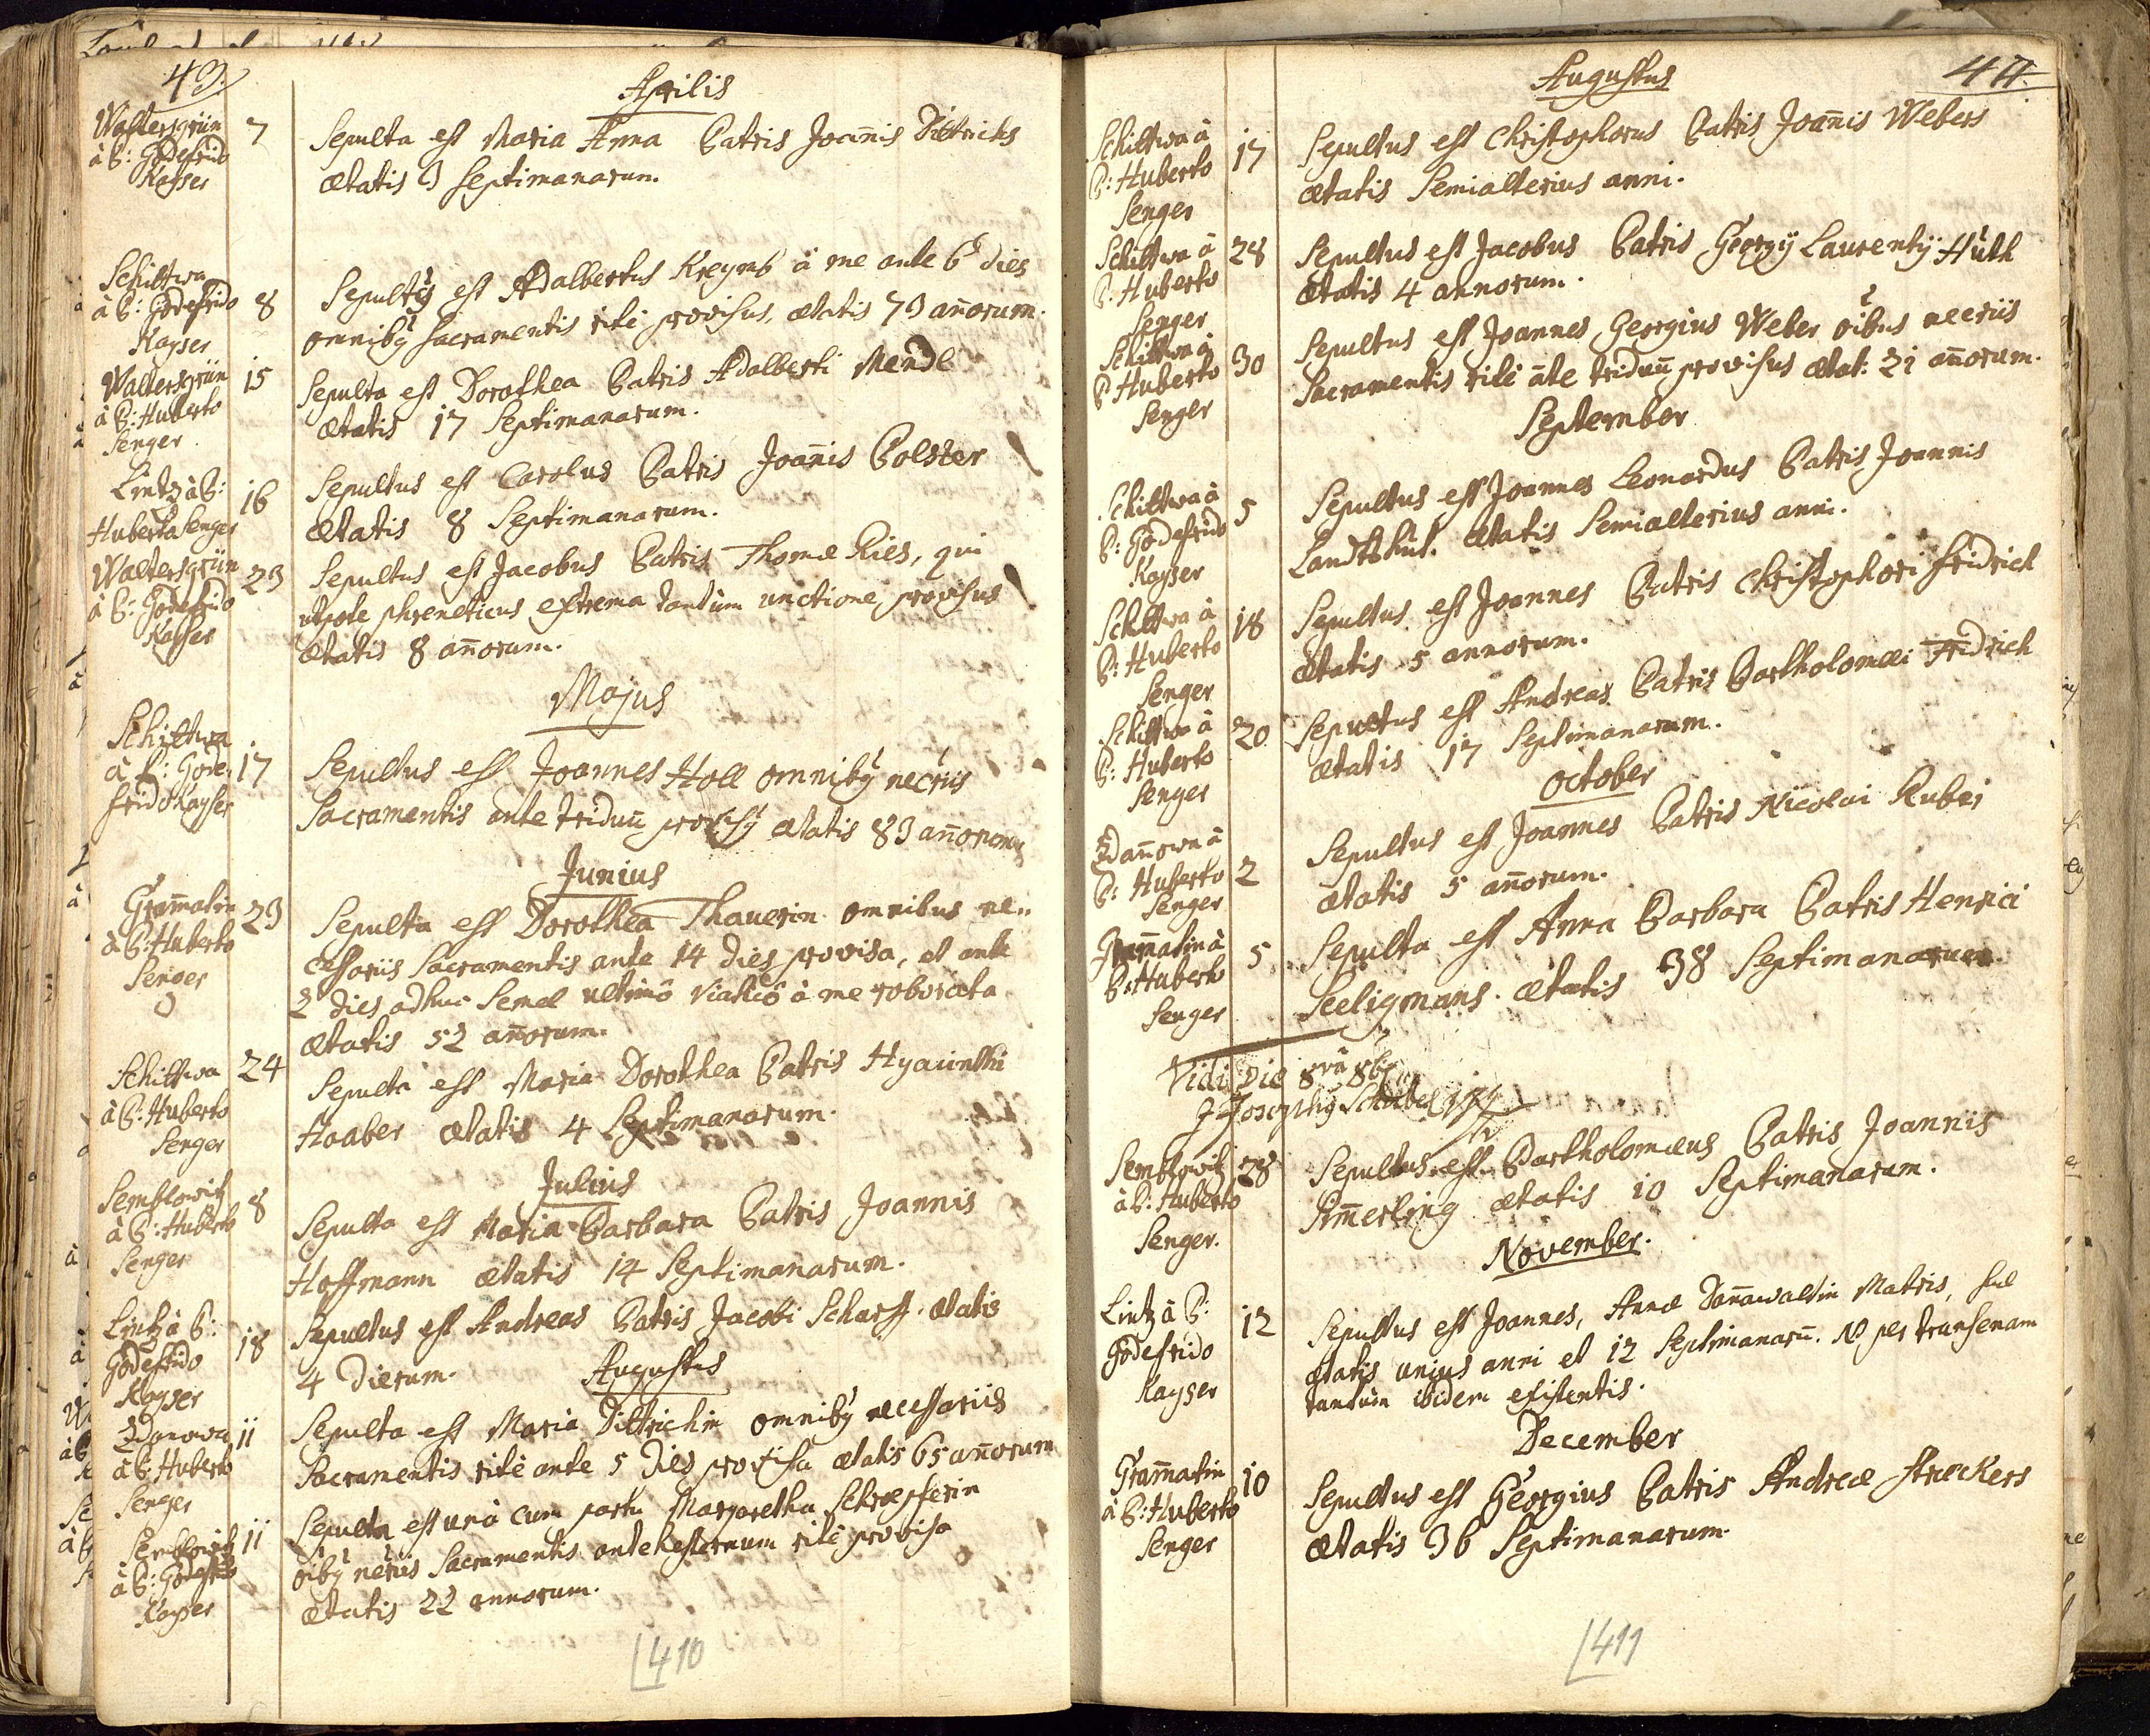 43.
Aprilis
Waltersgrün
à P: Godefrido
Kayser
7
Sepulta est Maria Anna Patris Joañis Dittrichs
ætatis 3 septimanarum.
Schiltwa
à P: Godefrido
Kayser
8
Sepultỹ est Adalbertus Kreymb à me ante 6 dies
omnibỹ sacramentis ritè provisus, ætatis 73 añorum.
Waltersgrün
à P: Huberto
Senger
15
Sepulta est Dorothea Patris Adalberti Mendl
ætatis 17 Septimanarum.
Lintz à P:
Huberto Senger
16
Sepultus est Carolus Patris Joañis Polster
ætatis 8 Septimanarum.
Waltersgrün
à P: Godefrido
Kayser
23
Sepultus est Jacobus Patris Thomæ Ries, qui
utpote phreneticus extrema tantùm unctione provisus
ætatis 8 añorum.
Majus
Schiltwa
à P: Gode-
frido Kayser
17
Sepultus est Joannes Holl omnibỹ necriis
Sacramentis ante triduũ provisỹ ætatis 83 añorum
Junius
Gramatin
à P: Huberto
Senger
23
Sepulta est Dorothea Thauerin omnibus ne-
cessariis Sacramentis ante 14 dies provisa, et ante
2 dies adhuc semel ultimô Viaticô à me roborata
ætatis 52 añorum.
Schiltwa
à P: Huberto
Senger
24
Sepulta est Maria Dorothea Patris Hyacinthi
Haaber ætatis 4 Septimanarum.
Julius
Semblowitz
à P: Huberto
Senger
8
Sepulta est Maria Barbara Patris Joannis
Hoffmann ætatis 14 Septimanarum.
Lintz à P:
Godefrido
Kayser
18
Sepultus est Andreas Patris Jacobi Scharff. ætatis
4 dierum.
Augustus
Zdanowa
à P: Huberto
Senger
11
Sepulta est Maria Dittrichin omnibỹ necessariis
Sacramentis ritè ante 5 dies provisa ætatis 65 añorum
Semblowitz
à P: Godefrido
Kayser
11
Sepulta est unà cum partu Margaretha Schræpferin
oibỹ neriis Sacramentis antehesternum ritè provisa
ætatis 22 annorum.
410
44.
Augustus
Schiltwa à
P: Huberto
Senger
17
Sepultus est Christophorus Patris Joañis Webers
ætatis Semialterius anni.
Schiltwa à
P: Huberto
Senger
28
Sepultus est Jacobus Patris Georgÿ Laurentÿ Hüth
ætatis 4 annorum.
Schiltwa à
P: Huberto
Senger
30
Sepultus est Joannes Georgius Weber oibus necriis
Sacramentis ritè ãte triduũ provisus ætat: 21 añorum.
September
Schiltwa à
P: Godefrido
Kayser
5
Sepultus est Joannes Leonardus Patris Joannis
Landtshut. ætatis Semialterius anni.
Schiltwa à
P: Huberto
Senger
18
Sepultus est Joannes Patris Christophori Fridrich
ætatis 5 annorum.
Schiltwa à
P: Huberto
Senger
20
Sepultus est Andreas Patris Bartholomæi Fridrich
ætatis 17 Septimanarum.
October
Zdañowa à
P: Huberto
Senger
2
Sepultus est Joannes Patris Nicolai Kuber
ætatis 5 añorum.
Gramatin à
P: Huberto
Senger
5
Sepulta est Anna Barbara Patris Henrici
Seeligmans. ætatis 38 Septimanarum.
Vidi Die 8và 8bỹ
Josephỹ
Semblowitz
à P: Huberto
Senger.
28
Sepultus est Bartholomæus Patris Joannis
Simerling ætatis 10 Septimanarum.
November.
Lintz à P:
Godefrido
Kayser
12
Sepultus est Joannes, Annæ Dañawaltin Matris, suæ
ætatis unius anni et 12 Septimanarũ. NB per transenam
tantùm ibidem existentis.
December
Gramatin
à P: Huberto
Senger
10
Sepultus est Georgius Patris Andreæ Streckers
ætatis 36 Septimanarum.
411